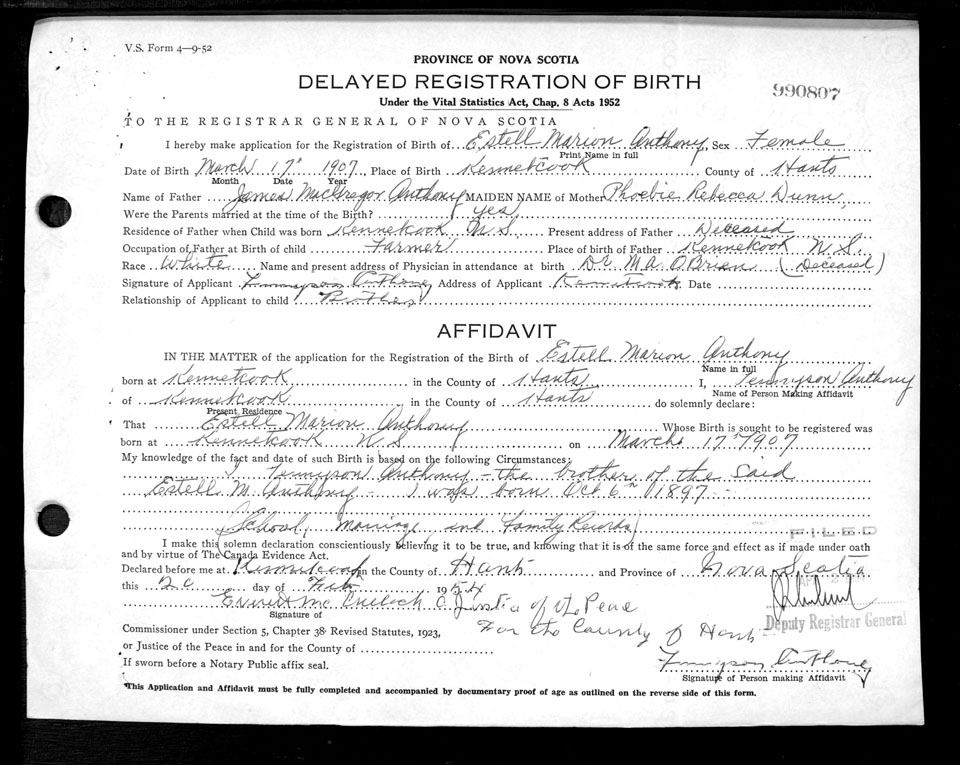 V.S. Form 4—9-52
PROVINCE OF NOVA SCOTIA
DELAYED REGISTRATION OF BIRTH
990807
Under the Vital Statistics Act, Chap. 8 Acts 1952
TO THE REGISTRAR GENERAL OF NOVA SCOTIA
I hereby make application for the Registration of Birth of Estell Marion Anthony, Sex Female
Print Name in full
Date of Birth March 17th 1907, Place of Birth Kennetcook County of Hants
Month Date Year
Name of Father James MacGregor Anthony MAIDEN NAME of Mother Phoebie Rebecca Dunn
Were the Parents married at the time of the Birth? yes
Residence of Father when Child was born Kennetcook N.S. Present address of Father Deceased
Occupation of Father at Birth of child Farmer Place of birth of Father Kennetcook N.S.
Race White Name and present address of Physician in attendance at birth Dr M.A. O'Brien (Deceased)
Signature of Applicant Tennyson Anthony Address of Applicant Kennetcook Date
Relationship of Applicant to child Brother
AFFIDAVIT
IN THE MATTER of the application for the Registration of the Birth of Estell Marion Anthony
Name in full
born at Kennetcook in the County of Hants I, Tennyson Anthony
Name of Person Making Affidavit
of Kennetcook in the County of Hants do solemnly declare:
Present Residence
That Estell Marion Anthony Whose Birth is sought to be registered was
born at Kennetcook N.S on March 17th 1907
My knowledge of the fact and date of such Birth is based on the following Circumstances:
I Tennyson Anthony - the brother of the said
Estell M. Anthony - I was born Oct 6th 1897 -
School, Marriage and Family Records
FILED
I make this solemn declaration conscientiously believing it to be true, and knowing that it is of the same force and effect as if made under oath
and by virtue of The Canada Evidence Act.
Declared before me at Kennetcook in the County of Hants and Province of Nova Scotia
this 20 day of Feb 1954
Everett McCulloch Justice of the Peace
Signature of
For the County of Hants
Deputy Registrar General
Commissioner under Section 5, Chapter 38 Revised Statutes, 1923,
or Justice of the Peace in and for the County of
Tennyson Anthony
If sworn before a Notary Public affix seal.
Signature of Person making Affidavit
*This Application and Affidavit must be fully completed and accompanied by documentary proof of age as outlined on the reverse side of this form.